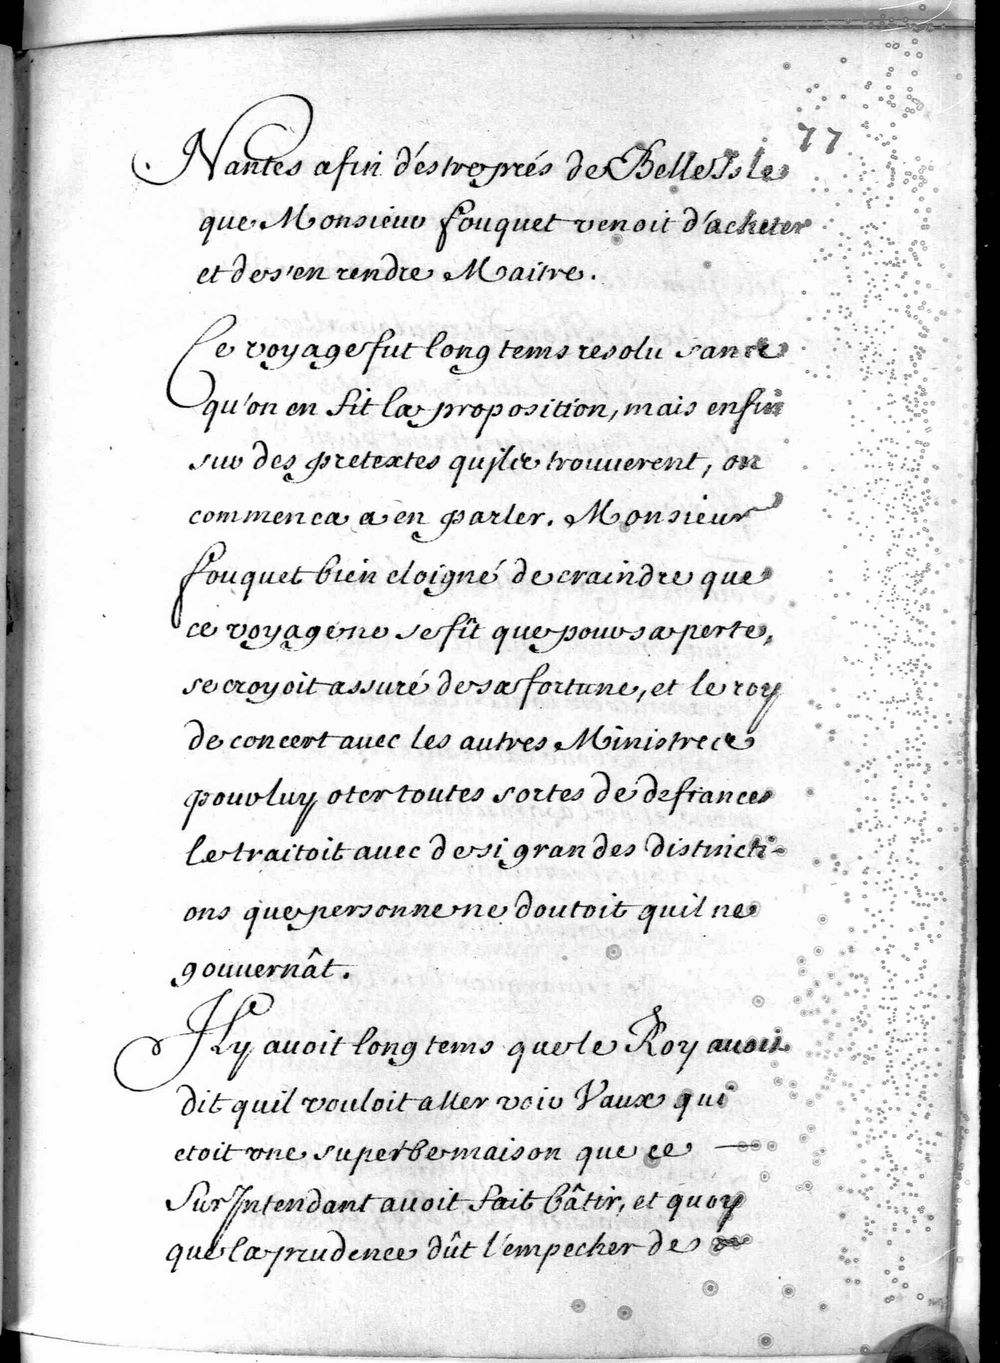 77
Nantes afin d'estre prés de Belle Isle
que Monsieur fouquet venoit d'acheter
et de s'en rendre Maitre.
Ce voyage fut long tems resolu sans
qu'on en fit la proposition, mais enfin
sur des pretextes qu'ils trouverent, on
commenca a en parler. Monsieur
fouquet bien eloigné de craindre que
ce voyage ne se fît que pour sa perte,
se croyoit assuré de sa fortune, et le roy
de concert avec les autres Ministres
pour luy oter toutes sortes de defiances
le traitoit avec de si grandes distincti-
ons que personne ne doutoit quil ne
gouvernât.
Il y avoit long tems que le Roy avoit
dit quil vouloit aller voir Vaux qui
etoit vne superbe maison que ce
Sur Intendant avoit fait bâtir, et quoy
que la prudence dût l'empecher de